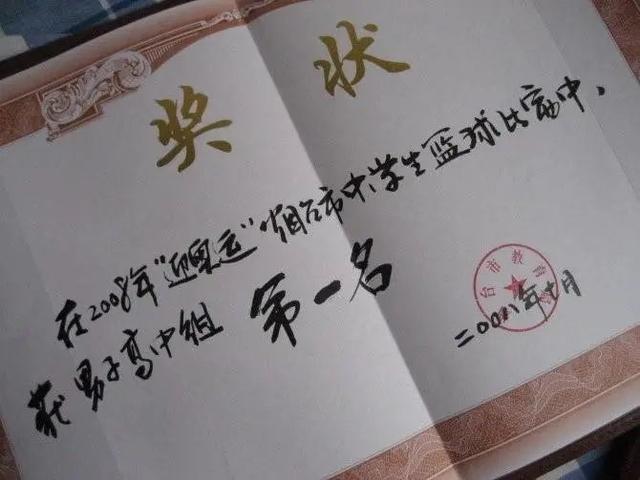 奖状
在2008年"迎奥运"烟台市中学生篮球比赛中，
获男子高中组 第一名
台市教育
二00八年 月